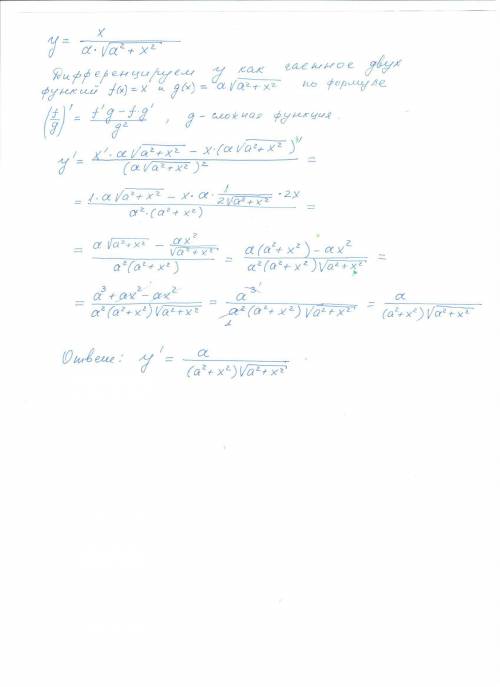 y = x / (a·√(a² + x²))
Дифференцируем y как частное двух
функций f(x) = x и g(x) = a√(a² + x²) по формуле
(f/g)' = (f'g − f·g') / g², g – сложная функция.
y' = (x'·a√(a² + x²) − x·(a√(a² + x²))') / (a√(a² + x²))² =
= (1·a√(a² + x²) − x·a·1/(2√(a² + x²))·2x) / (a²·(a² + x²)) =
= (a√(a² + x²) − ax²/√(a² + x²)) / (a²(a² + x²)) = (a(a² + x²) − ax²) / (a²(a² + x²)√(a² + x²)) =
= (a³ + ax² − ax²) / (a²(a² + x²)√(a² + x²)) = a³ / (a²(a² + x²)√(a² + x²)) = a / ((a² + x²)√(a² + x²))
Ответ: y' = a / ((a² + x²)√(a² + x²)).